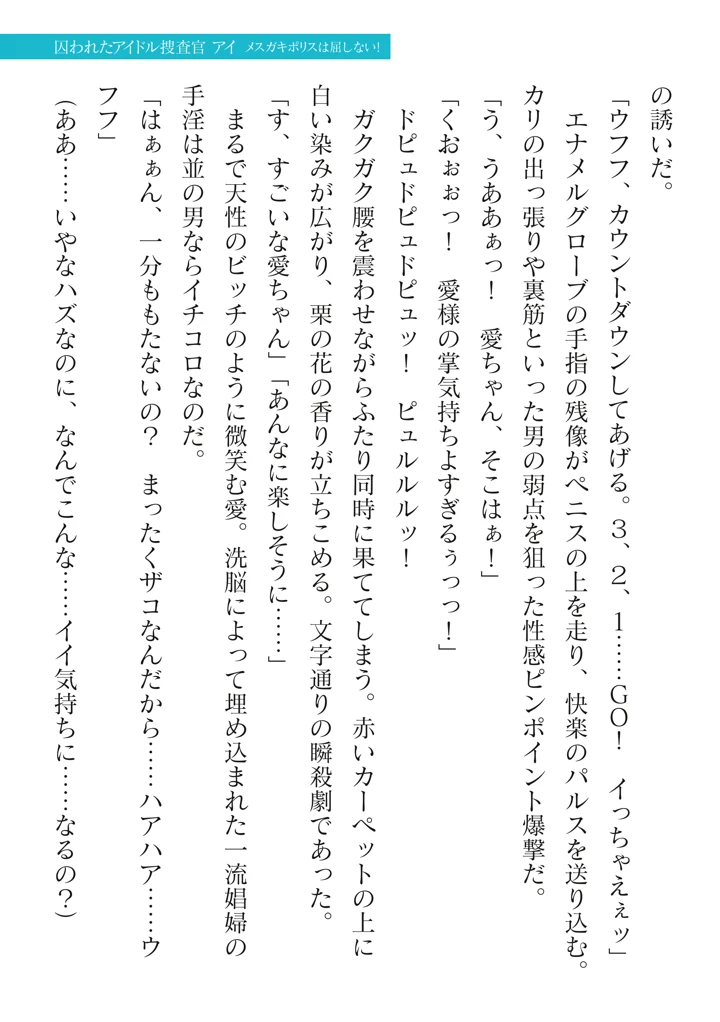 囚われたアイドル捜査官 アイ メスガキポリスは屈しない!
の誘いだ。
「ウフフ、カウントダウンしてあげる。3、2、1……GO! イっちゃえぇッ」
エナメルグローブの手指の残像がペニスの上を走り、快楽のパルスを送り込む。
カリの出っ張りや裏筋といった男の弱点を狙った性感ピンポイント爆撃だ。
「う、うああぁっ! 愛ちゃん、そこはぁ!」
「くおぉぉっ! 愛様の掌気持ちよすぎるぅっっ!」
ドピュドピュドピュッ! ピュルルルッ!
ガクガク腰を震わせながらふたり同時に果ててしまう。赤いカーペットの上に
白い染みが広がり、栗の花の香りが立ちこめる。文字通りの瞬殺劇であった。
「す、すごいな愛ちゃん」「あんなに楽しそうに……」
まるで天性のビッチのように微笑む愛。洗脳によって埋め込まれた一流娼婦の
手淫は並の男ならイチコロなのだ。
「はぁぁん、一分ももたないの? まったくザコなんだから……ハアハア……ウ
フフ」
(ああ……いやなハズなのに、なんでこんな……イイ気持ちに……なるの?)